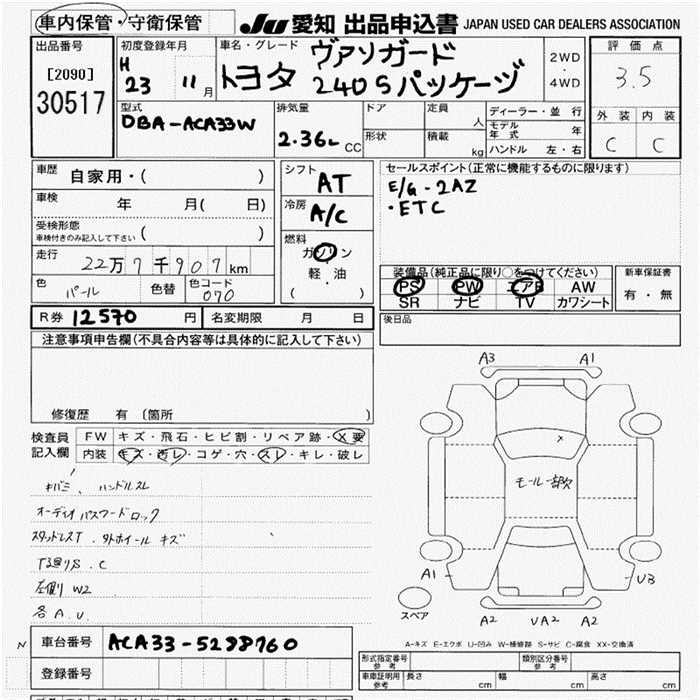 車内保管・守衛保管
JU 愛知 出品申込書 JAPAN USED CAR DEALERS ASSOCIATION
出品番号
[2090]
30517
初度登録年月
H 23 11月
車名・グレード
トヨタ ヴァンガード
240Sパッケージ
2WD
・
4WD
評価点
3.5
外装 内装
C C
型式
DBA-ACA33W
排気量
2.36L CC
ドア
定員 人
形状
積載 kg
ディーラー・並行
モデル年式 年
ハンドル 左・右
車歴 自家用・( )
車検 年 月( 日)
受検形態
車検付きのみ記入して下さい ( )
走行 22万7千907km
色 パール 色替 色コード 070
シフト AT
冷房 A/C
燃料
ガソリン
・
軽・油
( )
セールスポイント(正常に機能するものに限ります)
E/G-2AZ
・ETC
装備品(純正品に限り○をつけてください)
PS PW エアB AW
SR ナビ TV カワシート
新車保証書
有・無
R券 12570 円 名変期限 月 日
後日品
注意事項申告欄(不具合内容等は具体的に記入して下さい)
修復歴 有 (箇所 )
検査員記入欄
FW キズ・飛石・ヒビ割・リペア跡・X要
内装 キズ・汚レ・コゲ・穴・スレ・キレ・破レ
キバミ、ハンドルスレ
オーディオ パスワードロック
スタッドレスT. 外ホイール キズ
下廻りS.C
左側り W2
各A.U.
A3 A1
X
モール一部欠
A1 U3
スペア
A2 UA2 A2
A-キズ E-エクボ U-凹み W-補修跡 S-サビ C-腐食 XX-交換済
N
車台番号 ACA33-5298760
登録番号
形式指定番号 参考
類別区分番号 参考
車庫証明用 参考 長さ cm 幅 cm 高さ cm